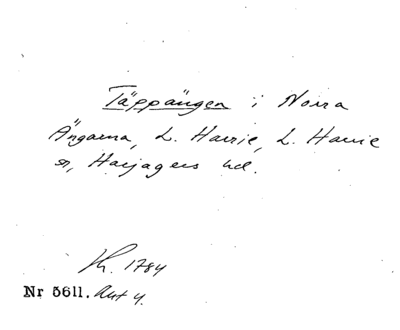 Täppängen i Norra
Ängarna, L. Harrie, L. Harrie
sn, Harjagers hd.
Kh. 1784
Nr 5611. Akt 4.